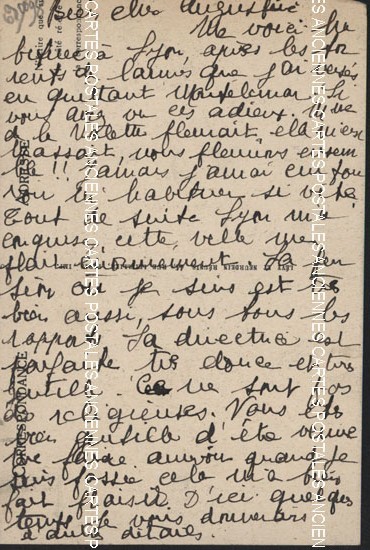 Ma chère Augustine
Me voici ha
bituée à Lyon, après les tor
rents de larmes que j'ai versés
en quittant Montélimar. Si
vous aviez vu ces adieux. Mme
de la Villette pleurait, elle m'em
brassait, nous pleurions ensem
ble !! Jamais j'aurai cru pou
voir m'habituer si vite.
Tout de suite Lyon m'a
conquise, cette ville me
plait énormément. La pen
sion où je suis est très
bien aussi, sous tous les
rapports. La directrice est
parfaite très douce et très
gentille. Ce ne sont pas
des religieuses. Vous êtes
bien gentille d'être venue
me faire au revoir quand je
suis passée cela m'a bien
fait plaisir. D'ici quelques
temps je vous donnerais
d'autres détails.
CORRESPONDANCE
ADRESSE
CARTES POSTALES ANCIENNES